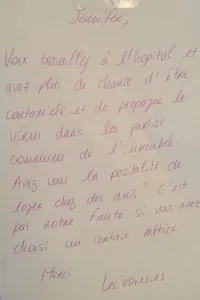 Jennifer,
Vous travaillez à l'hôpital et
avez plus de chance d'être
contaminée et de propager le
virus dans les parties
communes de l'immeuble
Avez vous la possibilité de
loger chez des amis ? C'est
pas notre faute si vous avez
choisi un certain métier
Merci
Les voisins...